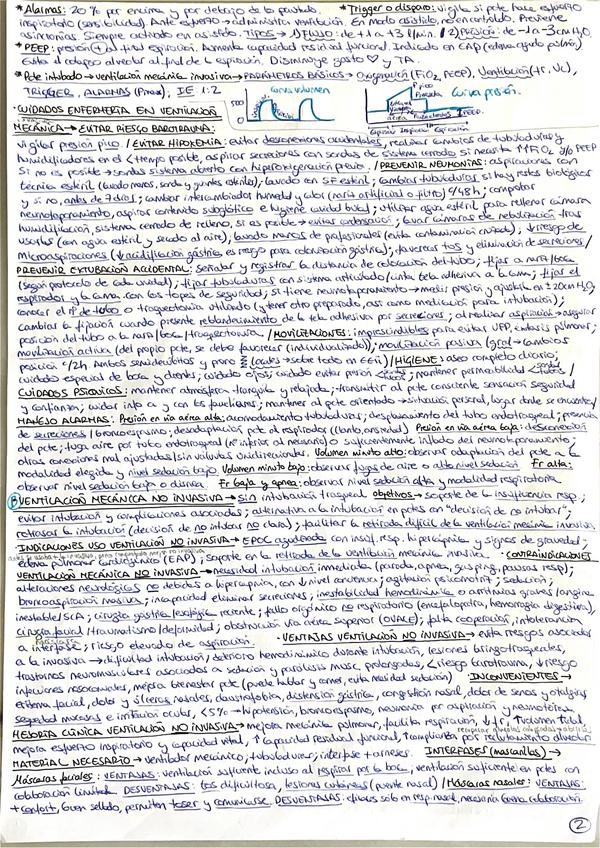 * Alarmas: 20% por encima y por debajo de lo pautado. * Trigger o disparo: vigila si pcte hace esfuerzo
inspiratorio (sensibilidad). Ante esfuerzo → administra ventilación. En modo asistido, no en controlado. Previene
asincronías. Siempre activado en asistido. Tipos → 1) Flujo: de +1 a +3 l/min. / 2) Presión: de -1 a -3 cm H2O.
* PEEP: presión (+) al final espiración. Aumenta capacidad residual funcional. Indicado en EAP (edema agudo pulmón)
Evita el colapso alveolar al final de la espiración. Disminuye gasto ♡ y TA.
* Pcte intubado → ventilación mecánica invasiva → PARÁMETROS BÁSICOS → Oxigenación (FiO2, PEEP), Ventilación (Fr, Vc),
TRIGGER, ALARMAS (Pmax), I:E 1:2 Curva volumen Curva presión.
500
0
P pico
PEEP
Espiración Inspiración Espiración
·CUIDADOS ENFERMERÍA EN VENTILACIÓN
MECÁNICA → EVITAR RIESGO BAROTRAUMA:
vigilar presión pico. / EVITAR HIPOXEMIA: evitar desconexiones accidentales, realizar cambios de tubuladuras y
humidificadores en el < tiempo posible, aspirar secreciones con sondas de sistema cerrado si necesita ↑↑ FiO2 y/o PEEP
Si no es posible → sondas sistema abierto con hiperoxigenación previa. / PREVENIR NEUMONÍAS: aspiraciones con
técnica estéril (lavado manos, sonda y guantes estériles); lavado con SF estéril; cambiar tubuladuras si hay restos biológicos
y si no, antes de 7 días; cambiar intercambiador humedad y calor (nariz artificial o filtro) c/48h; comprobar
neumotaponamiento, aspirar contenido subglótico e higiene cavidad bucal; utilizar agua estéril para rellenar cámara
humidificación, sistema cerrado de relleno, si es posible → evitar condensación; lavar cámaras de nebulización tras
usarlas (con agua estéril y secado al aire); lavado manos de profesionales (evita contaminación cruzada); ↓ riesgo de
microaspiraciones (↓ acidificación gástrica es riesgo para colonización gástrica); favorecer tos y eliminación de secreciones /
PREVENIR EXTUBACIÓN ACCIDENTAL: señalar y registrar la distancia de colocación del tubo; fijar a nariz/boca
(según protocolo de cada unidad); fijar tubuladuras con sistema articulado/cinta tela adhesiva a la cama; fijar el
respirador y la cama con los topes de seguridad; si tiene neumotaponamiento → medir presión y ajustarla en ± 20cm H2O;
conocer el nº de tubo o traqueotomía utilizado (y tener otro preparado, así como medicación para intubación);
cambiar la fijación cuando presente reblandecimiento de la tela adhesiva por secreciones; al realizar aspiración → asegurar
posición del tubo a la nariz/boca/traqueostomía. / MOVILIZACIONES: imprescindibles para evitar UPP, éxtasis pulmonar;
movilización activa (del propio pcte, se debe favorecer (individualizado)); movilización pasiva (gral → cambios
posición c/2h. Ambos semidecúbitos y prono / HIGIENE: aseo completo diario;
cuidado especial de boca y dientes; cuidado ojos; cuidado evitar presión; mantener permeabilidad /
CUIDADOS PSÍQUICOS: mantener atmósfera tranquila y relajada; transmitir al pcte consciente sensación seguridad
y confianza; cuidar info a y con los familiares; mantener al pcte orientado → situación personal, lugar donde se encuentra/
MANEJO ALARMAS: Presión en vía aérea alta: acodamiento tubuladuras; desplazamiento del tubo endotraqueal; presencia
de secreciones / broncoespasmo; desadaptación pcte al respirador (llanto, ansiedad). Presión en vía aérea baja: desconexión
del pcte; fuga aire por tubo endotraqueal (nº inferior al necesario) o suficientemente inflado del neumotaponamiento;
otras conexiones mal ajustadas/sin válvulas unidireccionales. Volumen minuto alto: observar adaptación del pcte a la
modalidad elegida y nivel sedación bajo. Volumen minuto bajo: observar fugas de aire o alto nivel sedación. Fr alta:
observar nivel sedación baja o disnea. Fr baja y apnea: observar nivel sedación alta y modalidad respiratoria.
VENTILACIÓN MECÁNICA NO INVASIVA → sin intubación traqueal. Objetivos → soporte de la insuficiencia resp.;
evitar intubación y complicaciones asociadas; alternativa a la intubación en pctes con "decisión de no intubar";
retrasar la intubación (decisión de no intubar no clara); facilitar la retirada difícil de la ventilación mecánica invasiva.
INDICACIONES USO VENTILACIÓN NO INVASIVA → EPOC agudizado con insuf. resp. hipercápnica y signos de gravedad;
edema pulmonar cardiogénico (EAP); soporte en la retirada de la ventilación mecánica invasiva. ·CONTRAINDICACIONES
VENTILACIÓN MECÁNICA NO INVASIVA → necesidad intubación inmediata (parada, apnea, gasping, pausas resp);
alteraciones neurológicas no debidas a hipercapnia, con ↓ nivel conciencia; agitación psicomotriz; sedación;
broncoaspiración masiva; incapacidad eliminar secreciones; inestabilidad hemodinámica o arritmias graves/angina
inestable/SCA; cirugía gástrica/esofágica reciente; fallo orgánico no respiratorio (encefalopatía, hemorragia digestiva),
cirugía facial/traumatismo/deformidad; obstrucción vía aérea superior (OVACE); falta cooperación, intolerancia
a interfase; riesgo elevado de aspiración. ·VENTAJAS VENTILACIÓN NO INVASIVA → evita riesgos asociados
a la invasiva → dificultad intubación, deterioro hemodinámico durante intubación, lesiones faringotraqueales,
trastornos neuromusculares asociados a sedación y parálisis musc. prolongadas, < riesgo barotrauma, ↓ riesgo
infecciones nosocomiales, mejora bienestar pcte (puede hablar y comer, evita necesidad sedación) ·INCONVENIENTES →
eritema facial, dolor y úlceras nasales, claustrofobia, distensión gástrica, congestión nasal, dolor de senos y otalgias,
sequedad mucosas e irritación ocular, <5% → hipotensión, broncoespasmo, neumonía por aspiración y neumotórax.
MEJORÍA CLÍNICA VENTILACIÓN NO INVASIVA → mejora mecánica pulmonar, facilita respiración, ↓ fr, ↑ volumen tidal,
mejora esfuerzo inspiratorio y capacidad vital, ↑ capacidad residual funcional, ↑ compliance por reclutamiento alveolar
·MATERIAL NECESARIO → ventilador mecánico; tubuladuras; interfase + arneses. INTERFASES (mascarillas) →
Máscaras faciales: VENTAJAS: ventilación suficiente incluso al respirar por la boca, ventilación suficiente en pctes con
colaboración limitada. DESVENTAJAS: tos dificultosa, lesiones cutáneas (puente nasal) / Máscaras nasales: VENTAJAS:
+ confort, buen sellado, permiten toser y comunicarse. DESVENTAJAS: eficaces solo en resp. nasal, necesaria buena colaboración.
2